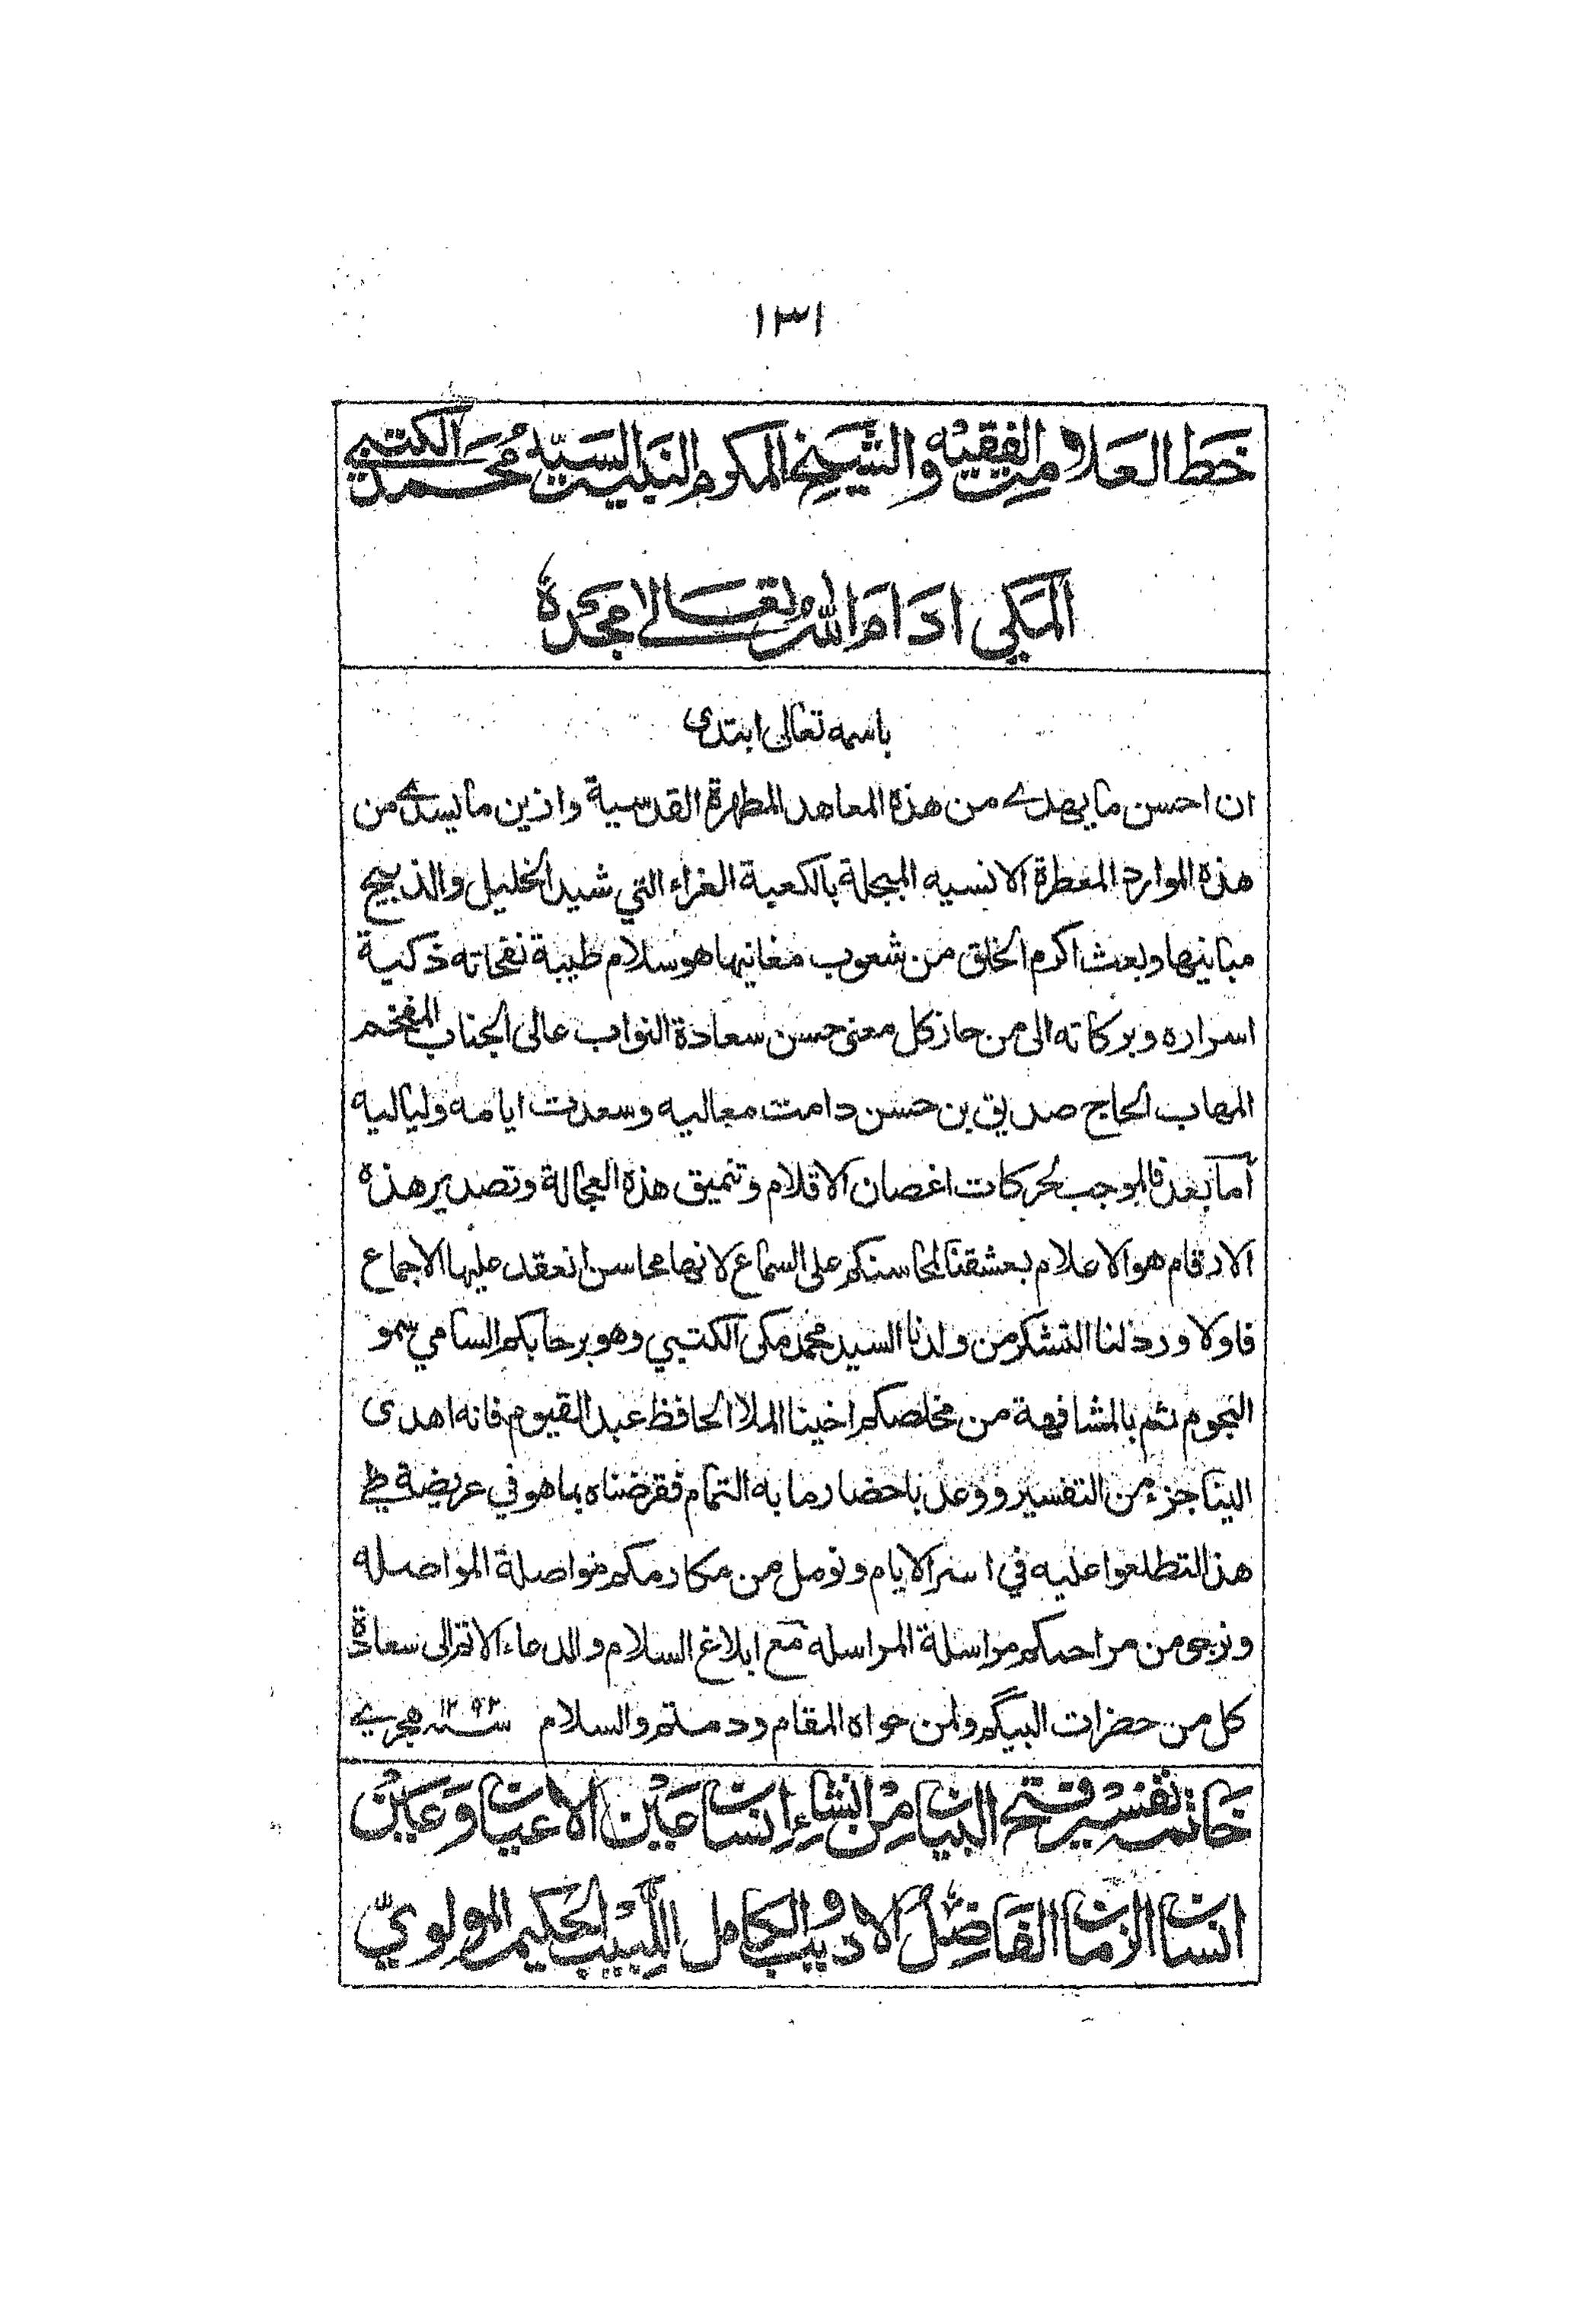 ١٣١
خط العلامة الفقيه والشيخ المكرم النبيه السيد محمد الكتبي
المكي ادام الله تعالى مجده
باسمه تعالى ابتدى
ان احسن ما يهدے من هذه المعاهد المطهرة القدسية وازين ما يسدے من
هذه الموارد المعطرة الانسيه المبجلة بالكعبة الغراء التي شيد الخليل والذبيح
مبانيها وبعث اكرم الخلق من شعوب مغانيها هو سلام طيبة نفحاته ذكية
اسراره وبركاته الى من حاز كل معنى حسن سعادة النواب عالى الجناب المفخم
المهاب الحاج صديق بن حسن دامت معاليه وسعدت ايامه ولياليه
اما بعد فالموجب لحركات اغصان الاقلام وتنميق هذه العجالة وتصدير هذه
الارقام هو الاعلام بعشقنا لمحاسنكم على السماع لانها محاسن انعقد عليها الاجماع
فاولا ورد لنا التشكر من ولدنا السيد محمد مكى الكتبي وهو برحابكم السامي سمو
النجوم ثم بالمشافهة من مخلصكم اخينا الملا الحافظ عبد القيوم فانه اهدى
الينا جزء من التفسير ووعدنا باحضار ما به التمام فقرضناه بما هو في عريضة طي
هذا لتطلعوا عليه في اسر الايام ونومل من مكارمكم مواصلة المواصله
ونرجى من مراحمكم مراسلة المراسله مع ابلاغ السلام والدعاء الاتم الى سعادة
كل من حضرات البيگم ولمن حواه المقام ودمتم والسلام سنه ١٢٩٢ هجرے
خاتمة تفسير فتح البيان من انشاء انسان عين الاعيان وعين
انسان الزمان الفاضل الاديب والكامل اللبيب الحكيم المولوي